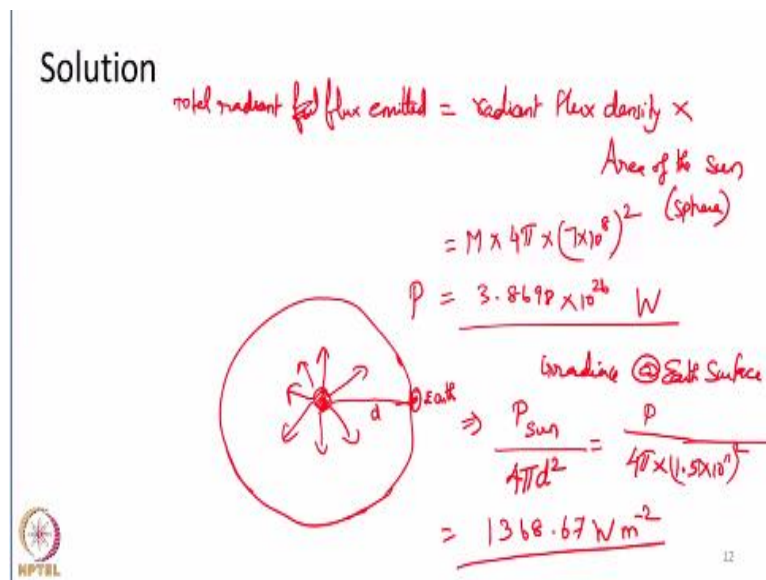 Solution
Total radiant flux emitted = radiant flux density ×
Area of the Sun
(sphere)
= M × 4π × (7×10⁸)²
P = 3.8698 × 10²⁶ W
irradiance @ Earth Surface
d Earth ⇒ P sun / 4πd² = P / 4π×(1.5×10¹¹)²
= 1368.67 W m⁻²
NPTEL
12